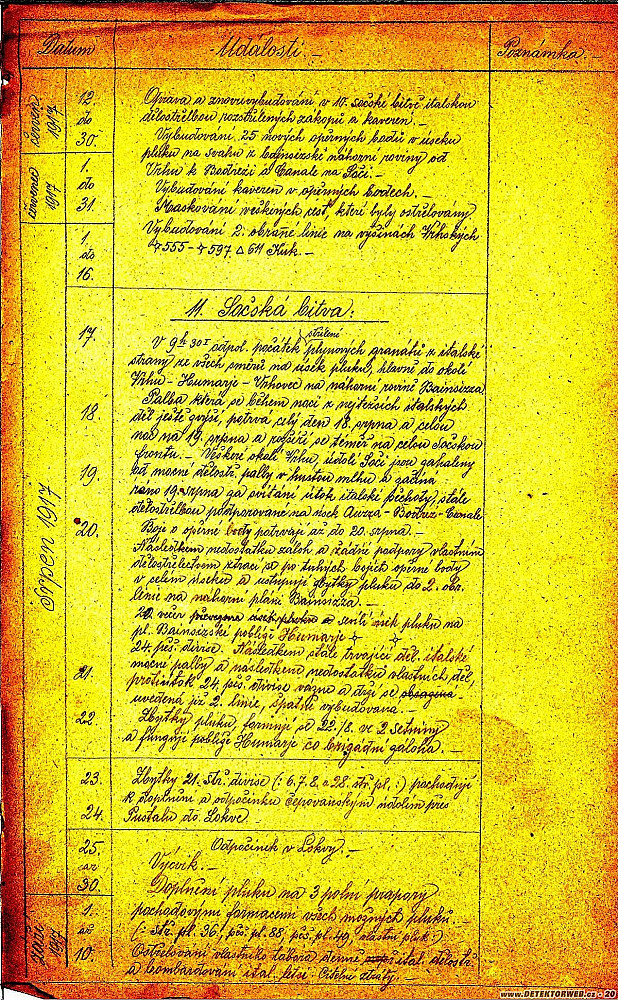 Datum Události.- Poznámka.-
červen 1917
12
do
30.
Oprava a znovuvybudování v 10. sočské bitvě italskou
dělostřelbou rozstřílených zákopů a kaveren.-
Vybudování 25 nových opěrných bodů v úseku
pluku na svahu z bajnsizské náhorní roviny od
Vrhu k Bodreži a Canale na Soči.-
červenec 1917
1.
do
31.
Vybudování kaveren v opěrných bodech.-
Maskování veškerých cest, které byly ostřelovány
Vybudování 2. obranné linie na výšinách Vrhských
1.
do
16.
555 - 597 △ 611 Kuk.-
11. Sočská bitva.
Srpen 1917
17.
V 9h 30 odpol. počátek střílení plynových granátů z italské
strany ze všech směrů na úsek pluku, hlavně do okolí
Vrhu - Humarje - Vrhovec na náhorní rovině Bainsizza.
18.
Palba která se během noci z nejtěžších italských
děl ještě zvýší, potrvá celý den 18. srpna a celou
noc na 19. srpna a rozšíří se téměř na celou Sočskou
frontu.- Veškeré okolí Vrhu, údolí Soči jsou zahaleny
19.
od mocné dělostř. palby v hustou mlhu a
ráno 19. srpna za svítání útok italské pěchoty, stále
dělostřelbou podporované na úsek - Bodrez - Canale
20.
Boje o opěrné body potrvají až do 20. srpna.-
Následkem nedostatku záloh a žádné podpory vlastním
dělostřelectvem ztrácí se po tuhých bojích opěrné body
v celém úseku a ustupují zbytky pluku do 2. obr.
linie na náhorní pláni Bainsizza.-
20. večer úsek pluku na
pl. Bainsizské poblíže Humarje
24. pěš. divise. Následkem stále trvající děl. italské
21.
mocné palby a následkem nedostatku vlastních děl,
protiútok 24. pěš. divise vázne a drží se
uvedená již 2. linie, špatně vybudovaná.-
22.
Zbytky pluku, formují se 22./8. ve 2 setniny
a fungují poblíže Humarje co brigádní záloha.-
23.
Zbytky 21. stř. divise (: 6. 7. 8. a 28. stř. pl. :) pochodují
k doplnění a odpočinku čepovanským údolím přes
24.
Pustalu do Lokve.-
25.
až
30.
Odpočinek v Lokvy.-
Výcvik.-
Doplnění pluku na 3 polní prapory
září 1917
1.
až
10.
pochodovými formacemi všech možných pluků.-
(: stř. pl. 36. pěš. pl. 88, pěš. pl. 49, vlastní pluk :).
Ostřelování vlastního tábora denně ital. dělostř.
a bombardování ital. letci. Číselní ztráty.-
www.DETEKTORWEB.cz - 20